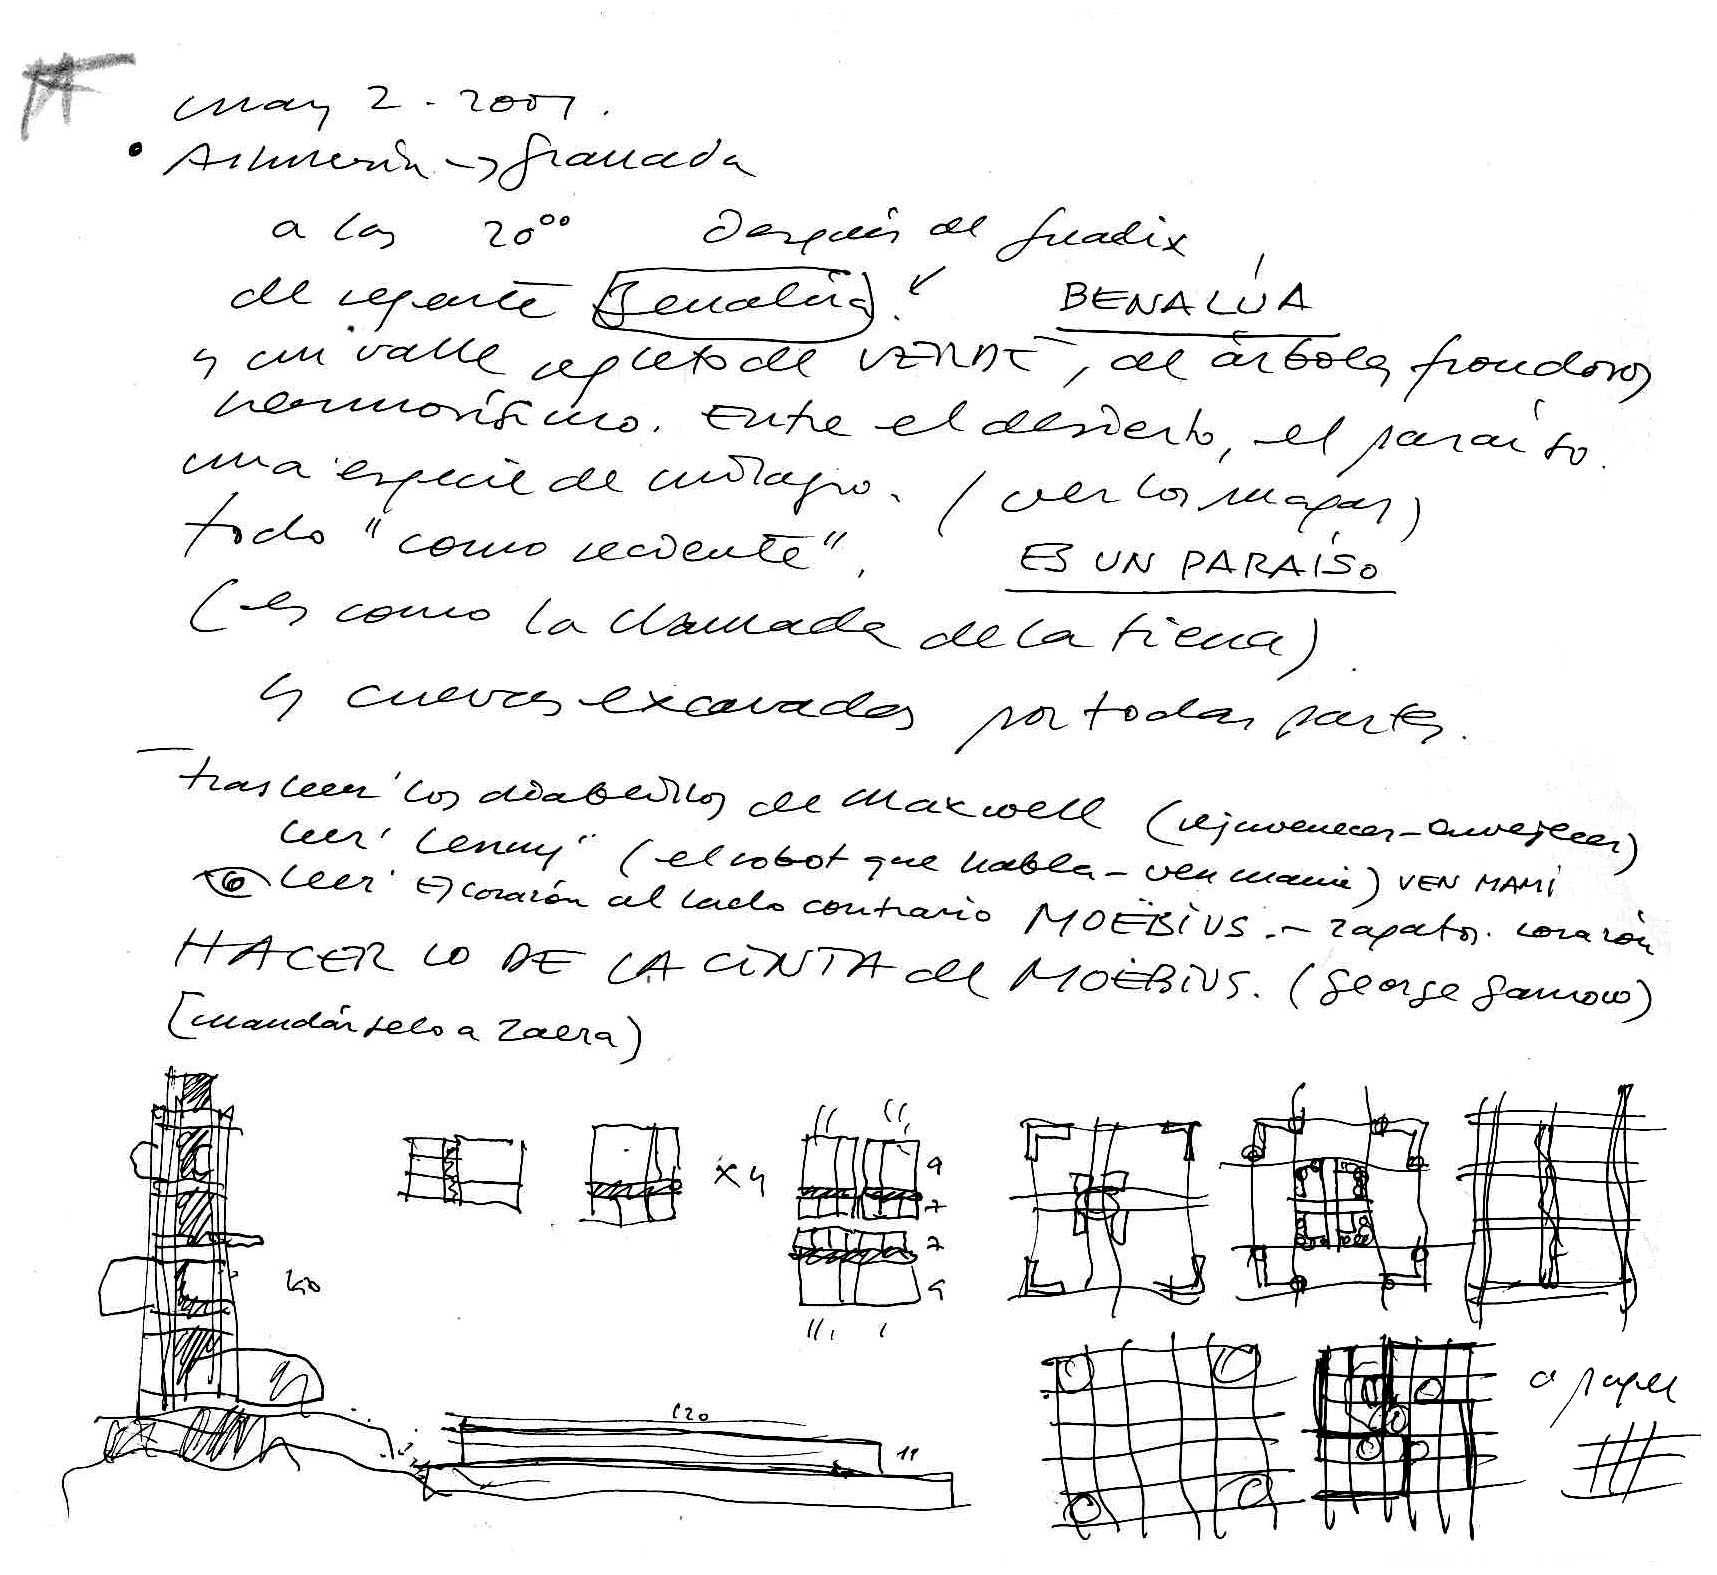 may 2 - 2001.
• Almería → Granada
a las 20⁰⁰ después de Guadix
de repente Benalúa. BENALÚA
y un valle repleto de VERDE, de árboles frondosos
hermosísimo. Entre el desierto, el paraíso.
una especie de milagro. (ver los mapas)
todo "como reciente". ES UN PARAÍSO
(es como la llamada de la tierra).
y cuevas excavadas por todas partes.
tras leer los diablillos de Maxwell (rejuvenecer-envejecer)
leer "Lenny" (el robot que habla - ven mami) VEN MAMI
leer corazón al lado contrario MOËBIUS. - zapatos. corazón
HACER LO DE LA CINTA de MOËBIUS. (George Gamow)
[mandárselo a Zaera)
x 4
9
7
7
9
40
120
11
a papel